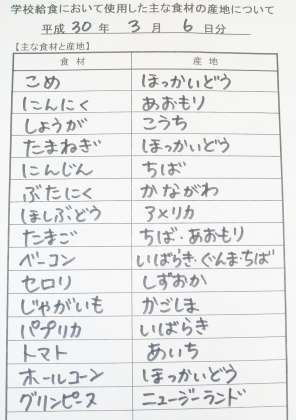 学校給食において使用した主な食材の産地について
平成 30 年 3 月 6 日分
【主な食材と産地】
食材 産地
こめ ほっかいどう
にんにく あおもり
しょうが こうち
たまねぎ ほっかいどう
にんじん ちば
ぶたにく かながわ
ほしぶどう アメリカ
たまご ちば・あおもり
ベーコン いばらき・ぐんま・ちば
セロリ しずおか
じゃがいも かごしま
パプリカ いばらき
トマト あいち
ホールコーン ほっかいどう
グリンピース ニュージーランド